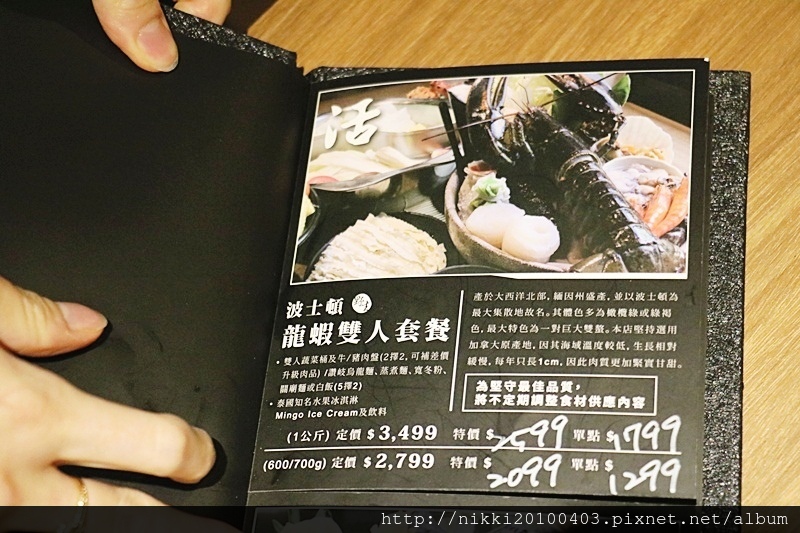 活
波士頓
龍蝦雙人套餐
• 雙人蔬菜桶及牛/豬肉盤(2擇2, 可補差價
升級肉品) /讚岐烏龍麵、蒸煮麵、寬冬粉、
關廟麵或白飯(5擇2)
• 泰國知名水果冰淇淋
Mingo Ice Cream及飲料
產於大西洋北部, 緬因州盛產, 並以波士頓為
最大集散地故名。其體色多為橄欖綠或綠褐
色, 最大特色為一對巨大雙螯。本店堅持選用
加拿大原產地, 因其海域溫度較低, 生長相對
緩慢, 每年只長1cm, 因此肉質更加緊實甘甜。
為堅守最佳品質,
將不定期調整食材供應內容
(1公斤) 定價 $3,499 特價 $2599 單點 $1799
(600/700g) 定價 $2,799 特價 $2099 單點 $1299
http://nikki20100403.pixnet.net/album